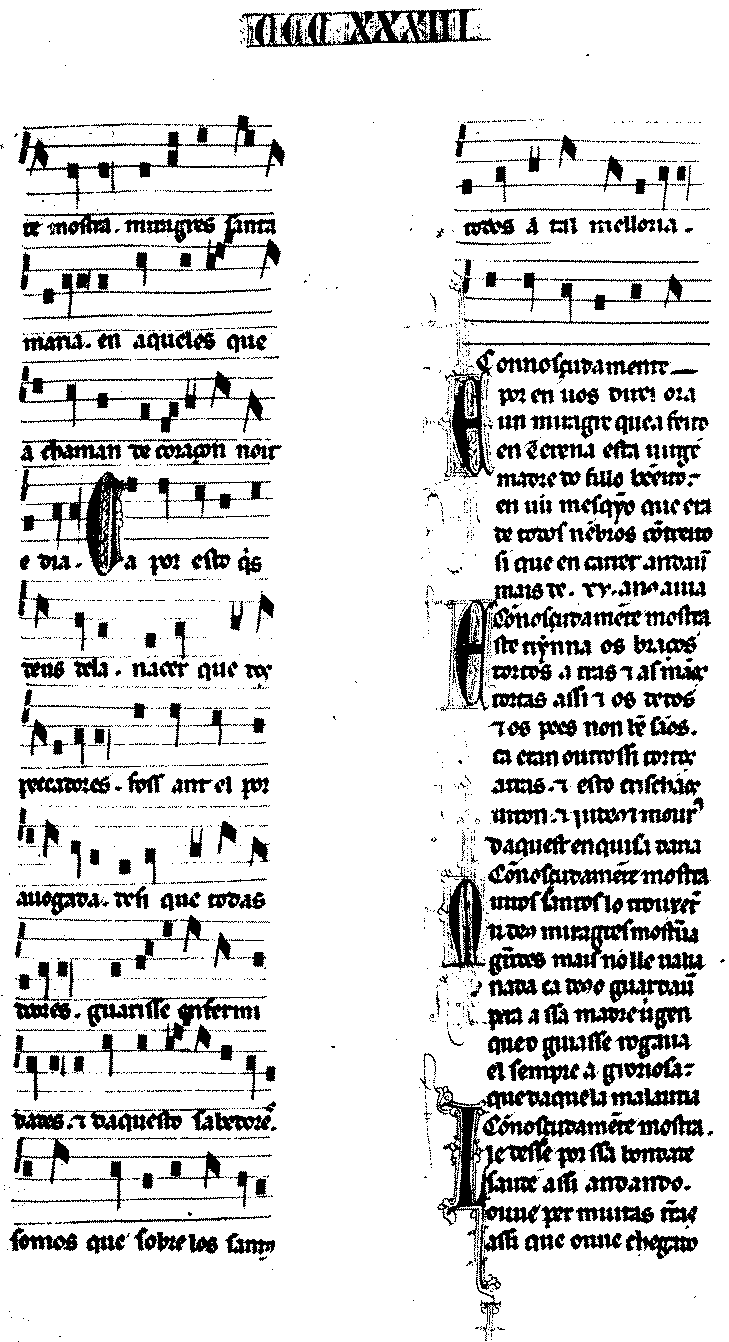 CCC XXXIII
te mostra. miragres santa
maria. en aqueles que
a chaman de coraçon noit
e dia. Ca por esto q̇s
deus dela. nacer que dos
peccadores. foss ant el por
auogada. desi que todas
dores. guarisse enfermi
dades. ⁊ daquesto sabedorẽ.
somos que sobre los santos
todos á tal melloria.
Connosçudamente
por en uos direi ora
un miragre que a feito
en esta uirgẽ
madre do fillo bẽeito.
en uũ mesqỹo que era
de todos nẽbros cõtreito
si que en carret andaũ
mais de. xv. anos auia
Cõnosçudamẽte mostra
Este os braços
tortos a tras ⁊ as mãos
tortas assi ⁊ os dedos
⁊ os pees non bẽ sãos.
ca eran outrossi tortos
⁊ esto
daquest en quisa dana
Cõnosçudamẽte mostra
santos lo trouxerõ
u deus miragres mostraua
grãdes mais nõ lle ualia
nada ca deo guardaũ
pera a ssa madre uigen
que o guarisse rogaua
el sempre a groriosa
que daquela malautia
Cõnosçudamẽte mostra.
lle desse por ssa bondade
saude assi andando.
ouue per muitas
assi que ouue chegado